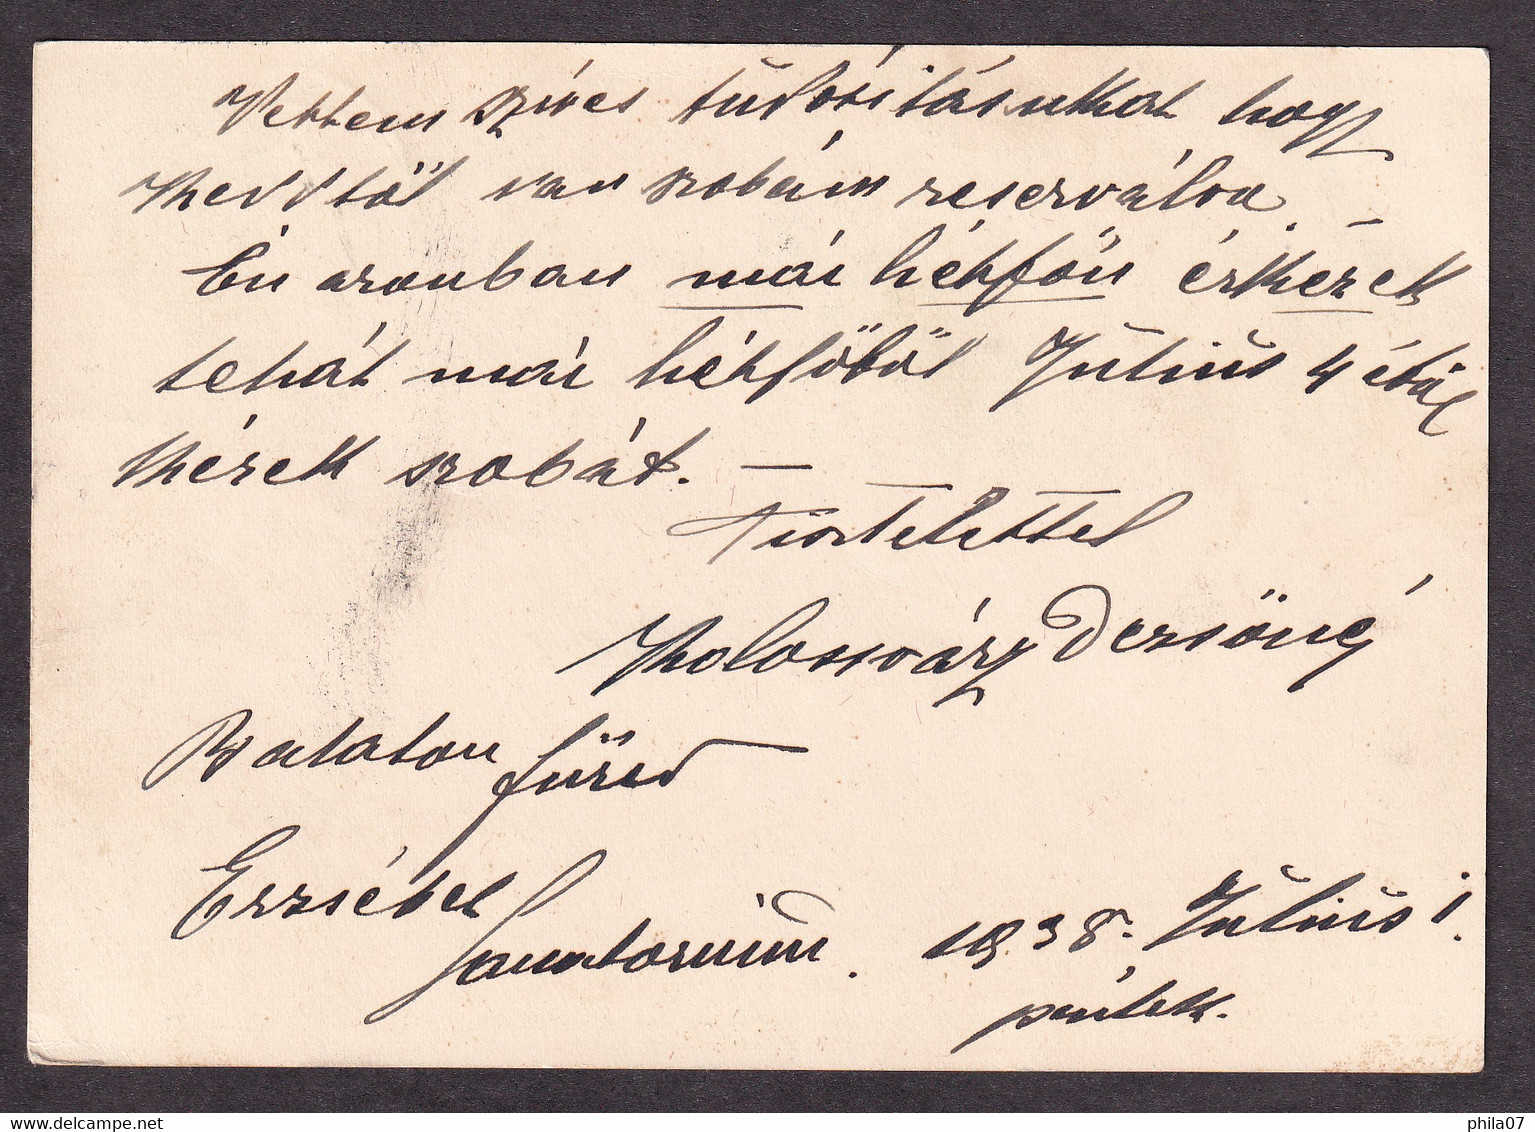 Vettem szíves tudósításukat hogy
Keddtől van szobám reserválva. –
Én azonban már hétfőn érkezek
tehát már hétfőtől Július 4 étől
kérek szobát. –
Tisztelettel
Kolosváry Dezsőné
Balaton
füred
Erzsébet
Sanatorium. 1938. Július 1.
péntek.
www.delcampe.net
phila07